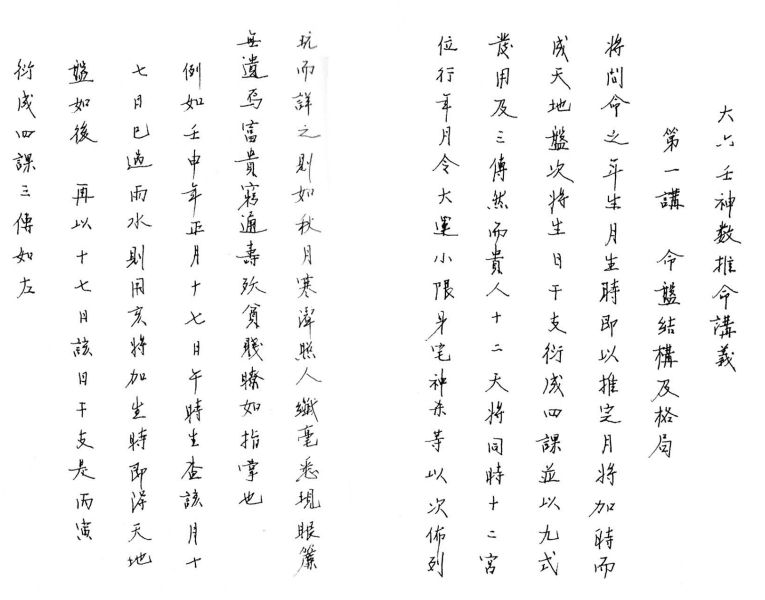 大六壬神數推命講義
第一講 命盤結構及格局
將問命之年生月生時即以推定月將加時而
成天地盤次將生日干支衍成四課並以九式
發用及三傳然而貴人十二天將同時十二宮
位行年月令大運小限身宅神杀等以次佈列
玩而詳之則如秋月寒潭照人纖毫悉現眼簾
無遺焉富貴窮通壽殀貧賤瞭如指掌也
例如壬申年正月十七日午時生查該月十
七日已過雨水則用亥將加生時即得天地
盤如後 再以十七日該日干支是丙寅
衍成四課三傳如左